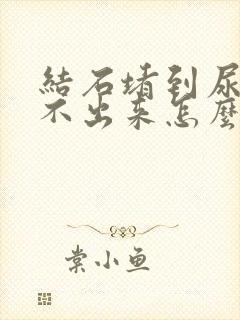 結石堵到尿
不出来怎麼
棠小鱼